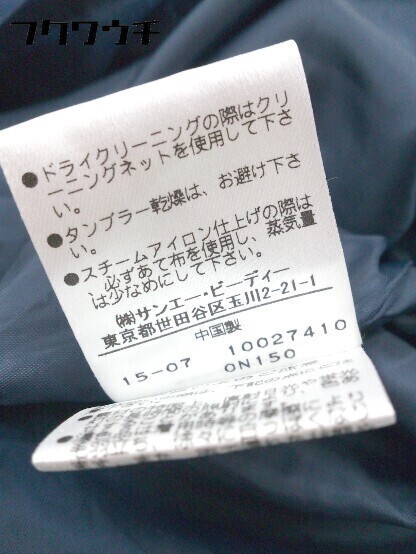 フクワウチ
●ドライクリーニングの際はクリ
ーニングネットを使用して下さ
い。
●タンブラー乾燥は、お避け下さ
い。
●スチームアイロン仕上げの際は
必ずあて布を使用し、蒸気量
は少なめにして下さい。
㈱サンエー・ビーディー
東京都世田谷区玉川2-21-1
中国製
15-07 10027410
0N150